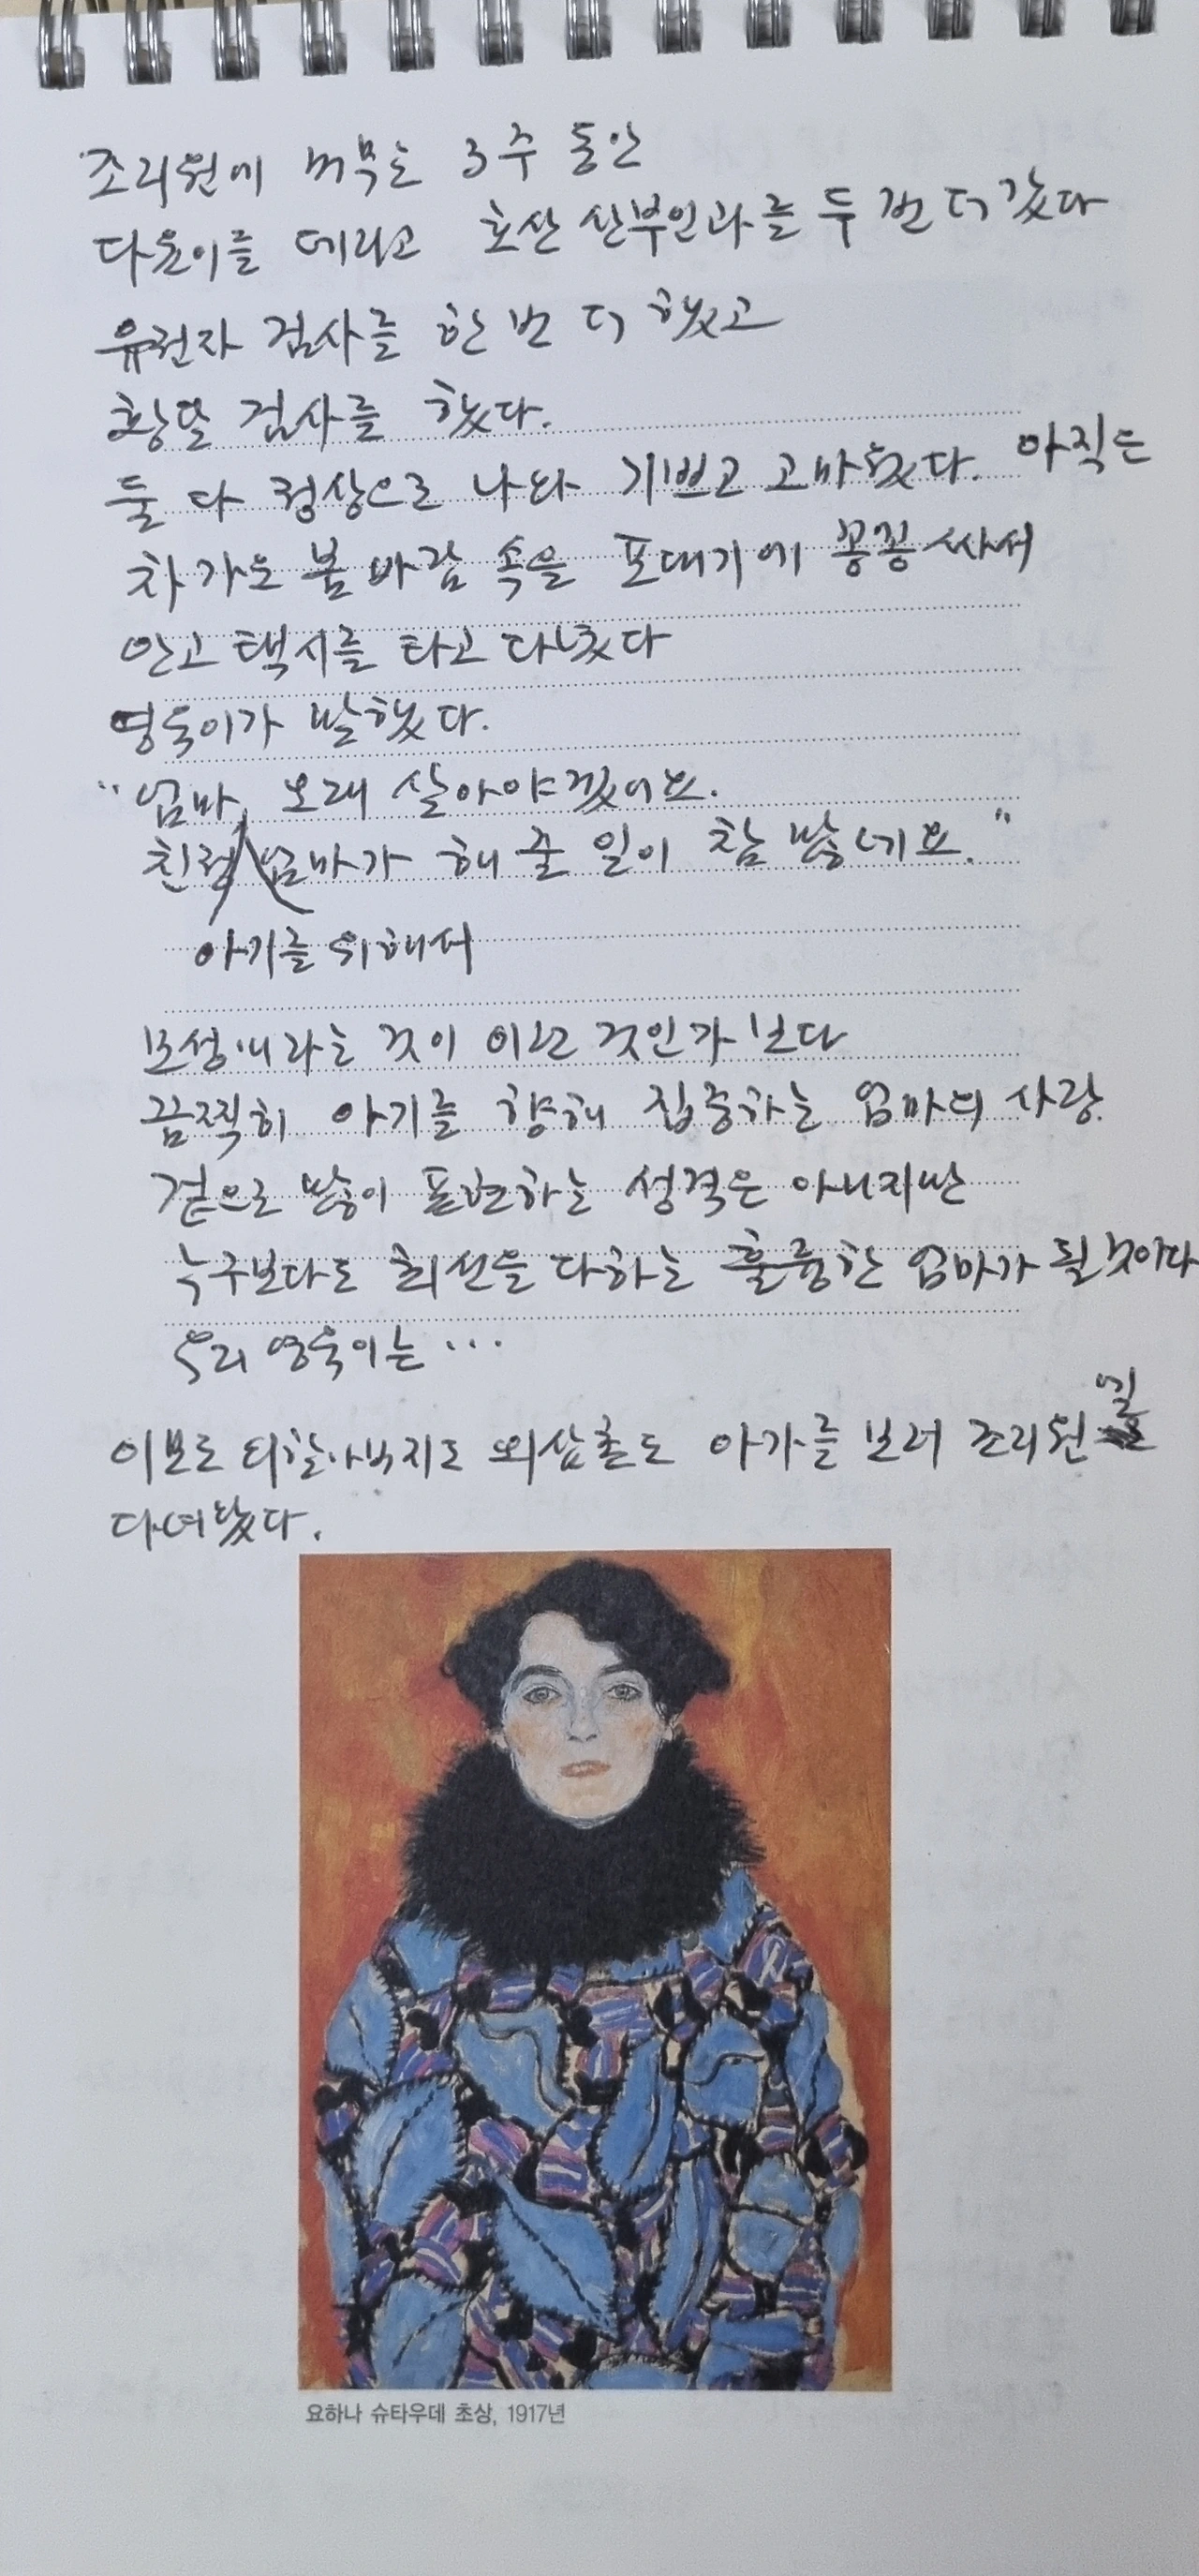 조리원에 머무는 3주 동안
다온이를 데리고 호산 산부인과를 두 번 더 갔다
유전자 검사를 한 번 더 했고
황달 검사를 했다.
둘 다 정상으로 나와 기쁘고 고마웠다. 아직은
차가운 봄바람 속을 포대기에 꽁꽁 싸서
안고 택시를 타고 다녔다
영욱이가 말했다.
"엄마, 오래 살아야겠어요.
친정엄마가 해 줄 일이 참 많네요."
아기를 위해서
모성애라는 것이 이런 것인가 보다
끔찍히 아기를 향해 집중하는 엄마의 사랑.
겉으로 많이 표현하는 성격은 아니지만
누구보다도 최선을 다하는 훌륭한 엄마가 될 것이다
우리 영욱이는 ...
이모도 외할아버지도 외삼촌도 아가를 보러 조리원엘
다녀갔다.
요하나 슈타우데 초상, 1917년